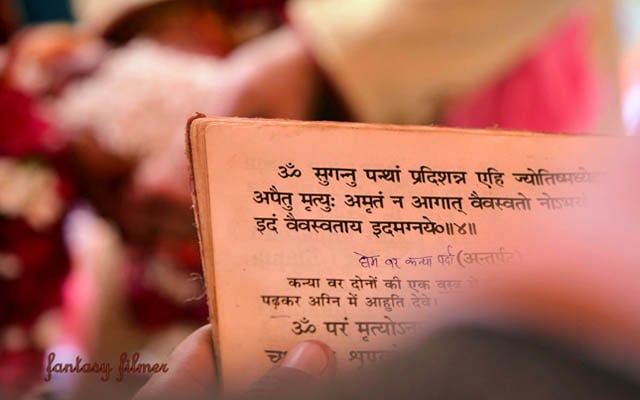 ॐ सुगन्नु पन्थां प्रदिशन्न एहि ज्योतिष्मध्ये
अपैतु मृत्युः अमृतं न आगात् वैवस्वतो नोऽभयं
इदं वैवस्वताय इदमग्नये०॥४॥
होम वर कन्या पर्दा (अन्तर्पट)
कन्या वर दोनों की एक वस्त्र से
पढ़कर अग्नि में आहुति देवे।
ॐ परं मृत्यो
fantasy filmer